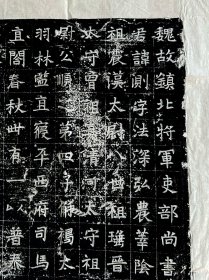 魏故鎮北將軍吏部尚書
君諱測字法深弘農華陰
祖震漢太尉八世祖瑤晉
太守曾祖真清河太守祖
尉公順之第四子解褐太
羽林監直寢平西府司馬
直閤春秋卅有以普泰